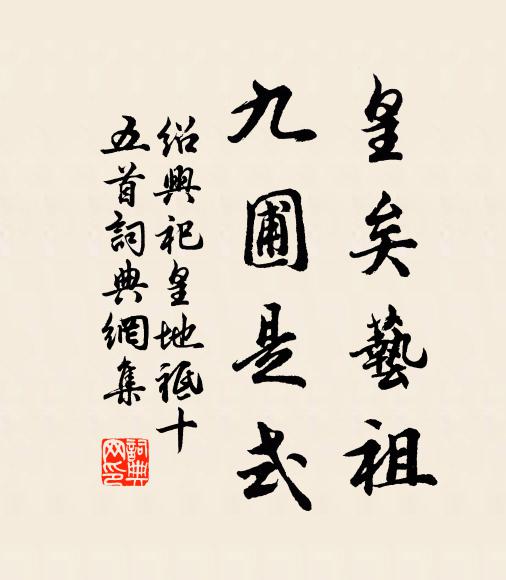 皇矣藝祖
九圃是式
紹興祀皇地祗十
五首詞典網集
詞典
网印